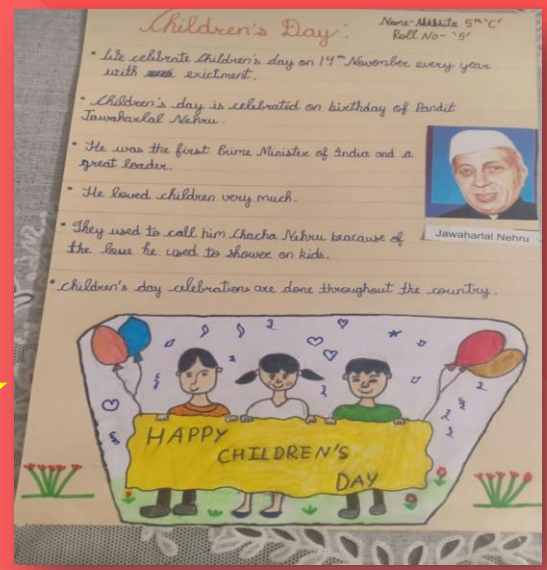 Children's Day :
Name- 5th "C"
Roll No- '5'
• We celebrate children's day on 14th Novenber every year
with exictment.
• Children's day is celebrated on birthday of Pandit
Jawaharlal Nehru.
• He was the first Prime Minister of India and a
great leader.
• He loved children very much.
• They used to call him Chacha Nehru beacause of
the love he used to shower on kids.
• Children's day celebrations are done throughout the country.
Jawaharlal Nehru
HAPPY
CHILDREN'S
DAY